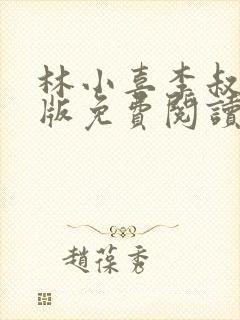 林小喜李叔
版免費閱讀
趙葆秀